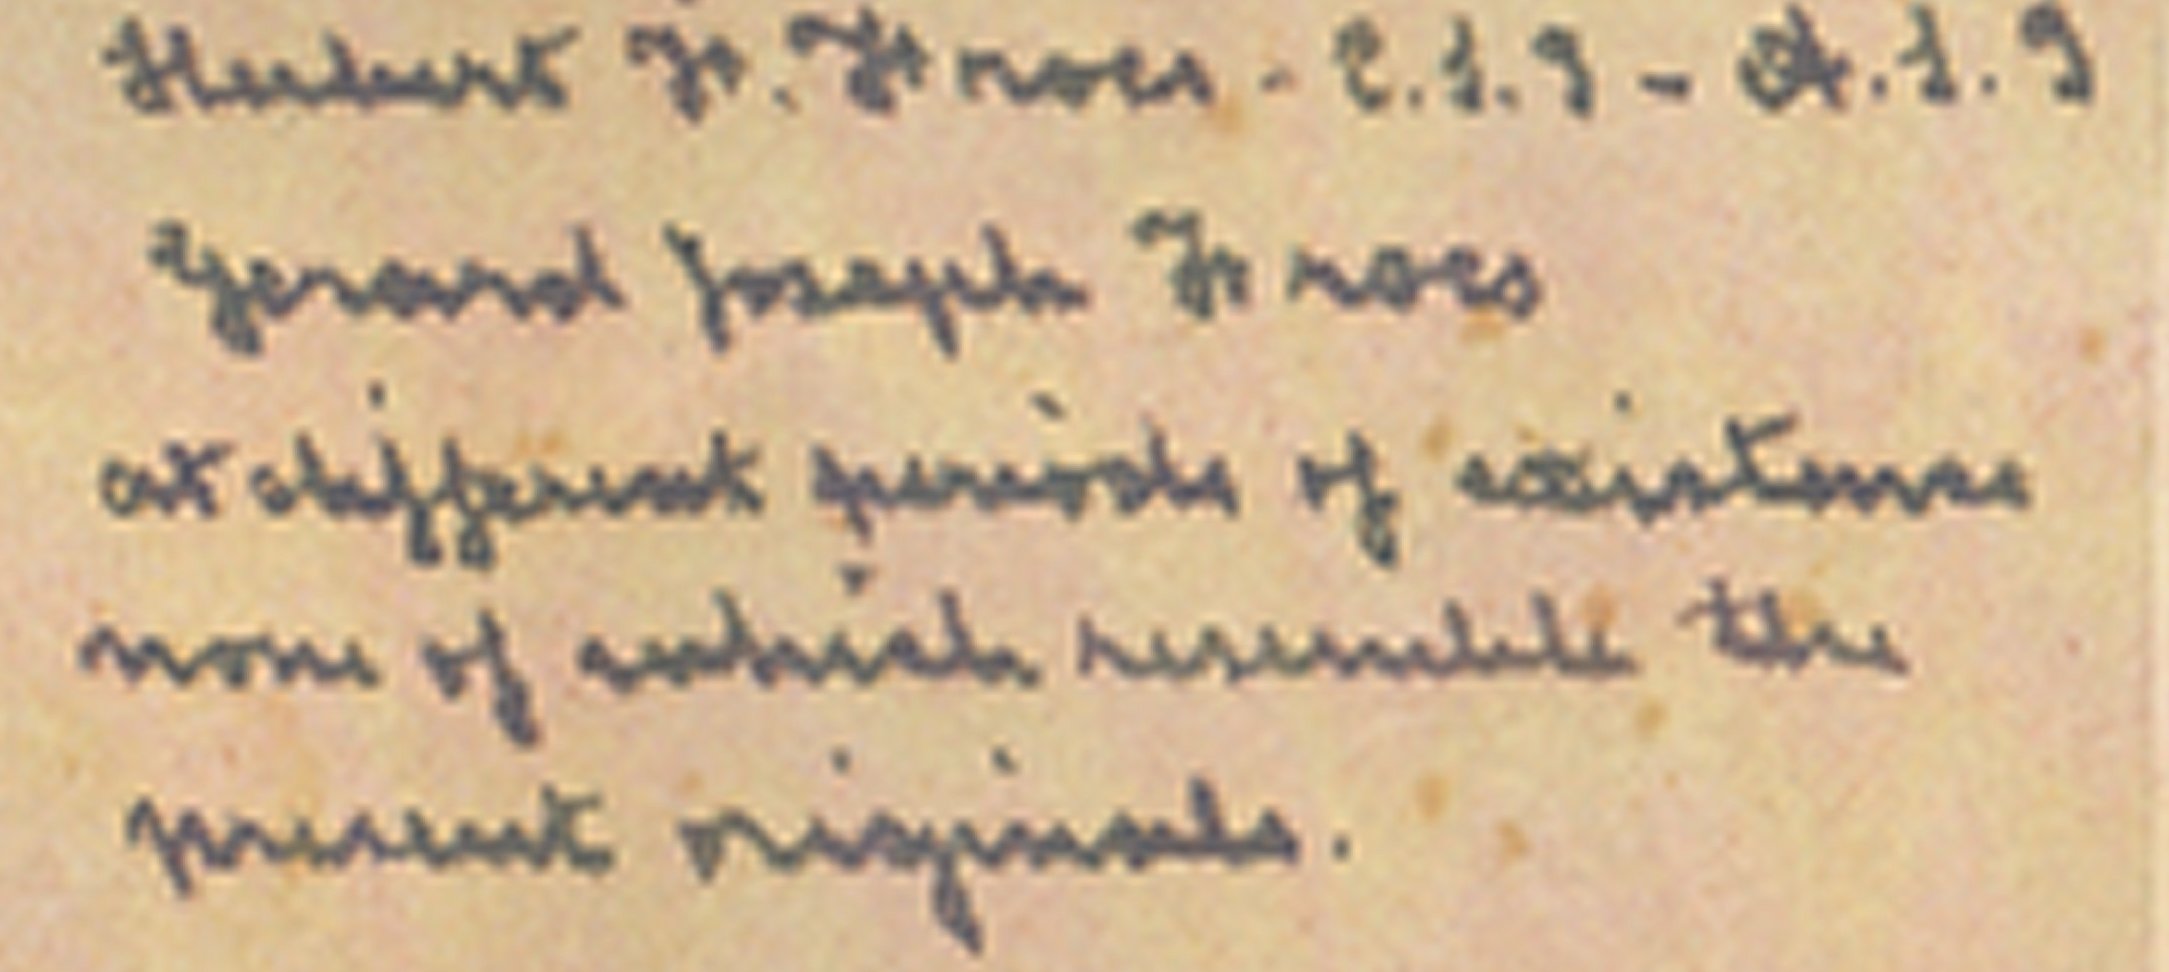 Herbert Fr. Froes - C.S.I - A.S.I
Gerard Joseph Froes
at different periods of existence
none of which resemble the
present originals.